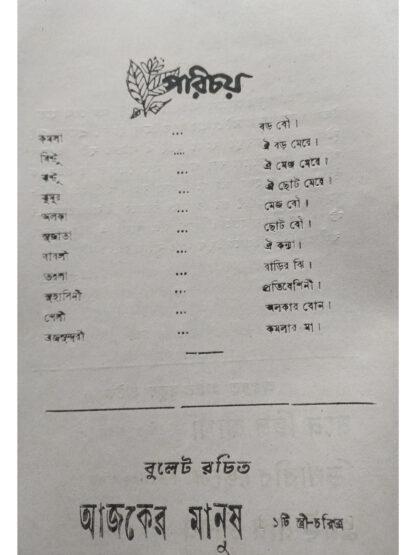 পরিচয়
কমলা ... বড় বৌ।
রিন্টু ... ঐ বড় মেয়ে।
ঝন্টু ... ঐ মেজ মেয়ে।
ঝুমুর ... ঐ ছোট মেয়ে।
অলকা ... মেজ বৌ।
সুজাতা ... ছোট বৌ।
বাবলী ... ঐ কন্যা।
তরলা ... বাড়ির ঝি।
সুহাসিনী ... প্রতিবেশিনী।
শেলী ... অলকার বোন।
ব্রজসুন্দরী ... কমলার মা।
বুলেট রচিত
আজকের মানুষ ১টি স্ত্রী-চরিত্র